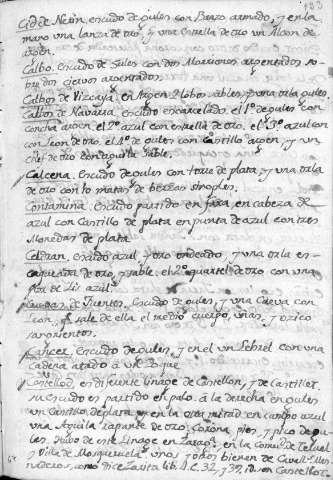 Cid de Neün, encudo de gules con Brazo armado, y en la
mano vna lanza de oro, y vna estrella de oro vn Alcon de
argen.
Calbo. Encudo de Gules con dos Albarsones argentados so-
bre dos ciervos argentados.
Calbos de Vizcaya, en Argen 2 lobos sables, y vna orla gules.
Calbos de Navarra, encudo encarcelado. el 1º de gules con
concha argen. el 2º azul con estrella de oro. el 3º azul con
con Leon de oro. el 4º de gules con Cantillo argen, y vn
chef de oro con aguila Sable.
Calcena. Encudo de gules con torre de plata, y vna orla
de oro con 10 matas de berzas sinoples.
Contamina. encudo partido en faxa, en cabeza de
azul con Cantillo de plata en punta de azul con tres
Monedas de plata.
Celdran. encudo azul, y oro ondeado, y vna orla en-
caquetada de oro, y sable. el 2º quartel de oro con vna
flor de Lis azul.
Cuevas de Fuentes. Encudo de gules, y vna Cueva con
Leon, q sale de ella el medio cuerpo, vñas, y ozico
sangrientos.
Cancer. Encudo de gules, y en el vn Lebrel con vna
cadena atado à vn Bosque.
Castellod, en diferente linage de Castellon, y de Castillet.
su encudo es partido en palo. à la derecha en gules
vn Cantillo de plata, y en la otra mitad en campo azul
vna Aguila rapante de oro; Corona, pies, y pico de gu-
les. Hubo de este Linage en Zarag.ª, en la Comu.d de Teruel
y Villa de Mosqueruela, vnos, y otros vienen de Cavalleros
mesnaderos, como dice Zurita lib. 1. C. 32, y 39. id. en Castellot.